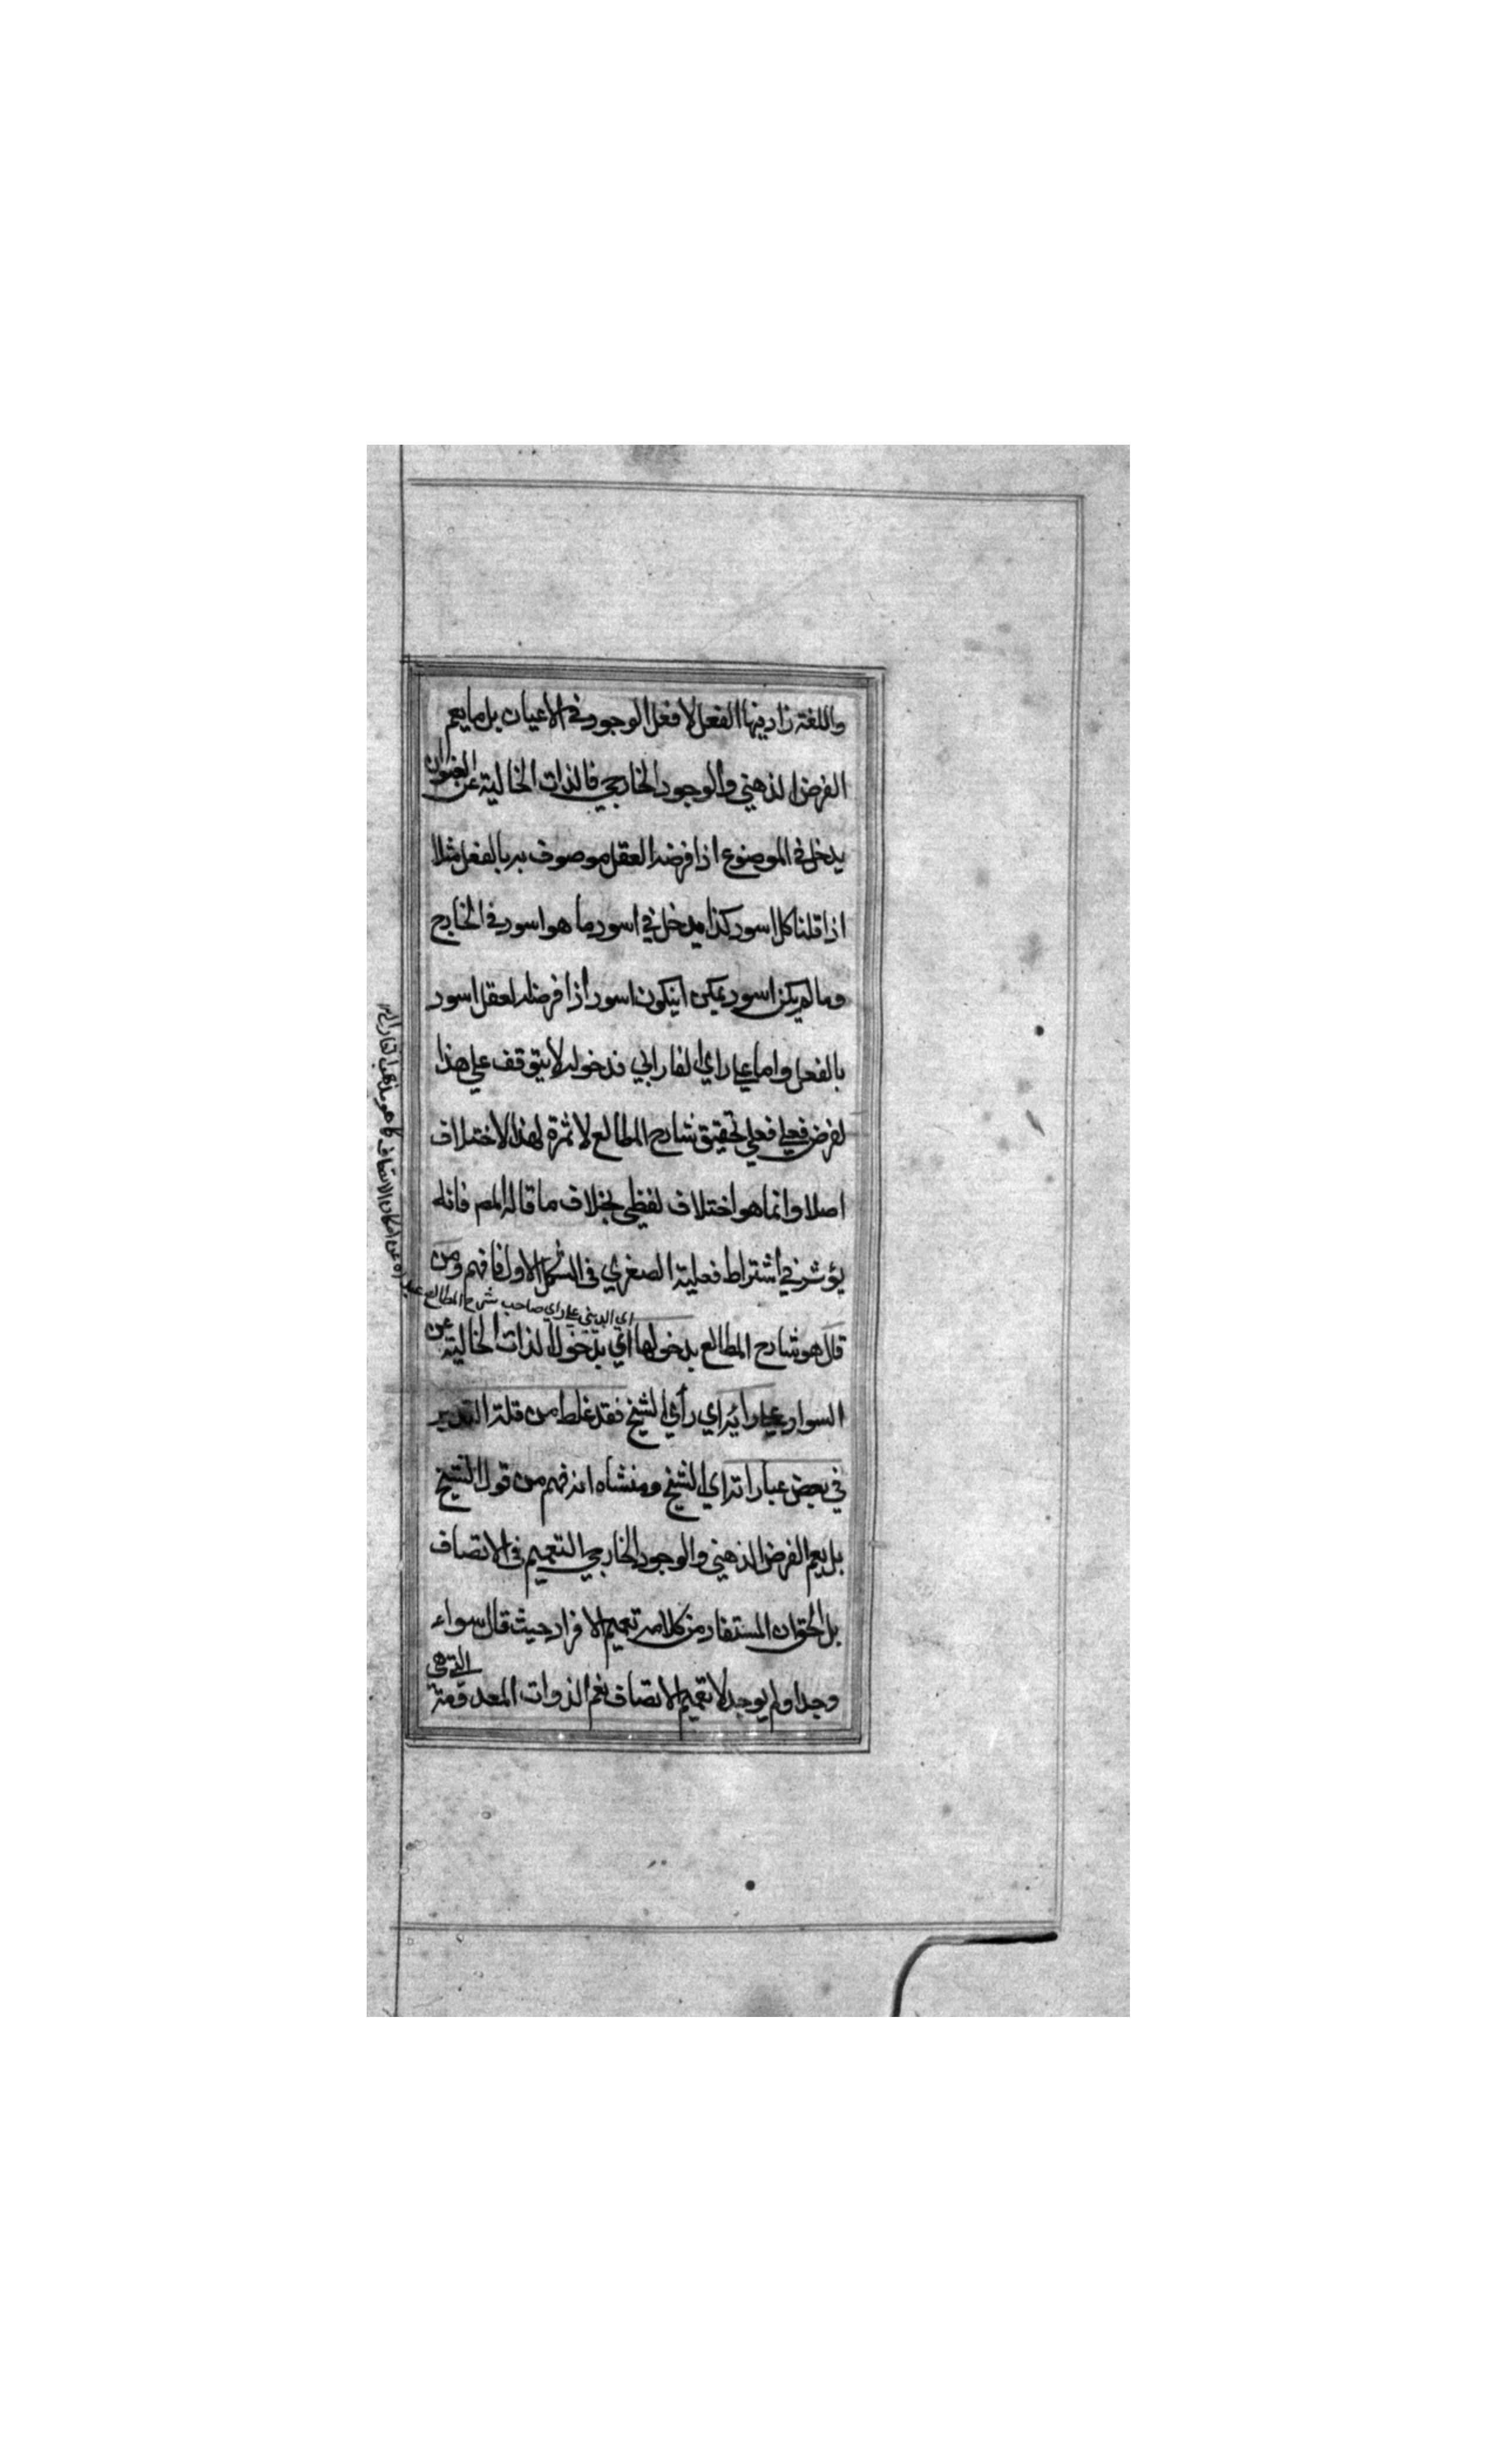 واللغة زاد فيها الفعل لا فعل الوجود في الاعيان بل ما يعم
الفرض الذهني والوجود الخارجي فالذات الخالية عن العنوان
يدخل في الموضوع اذا فرضه العقل موصوف به بالفعل مثلا
اذا قلنا كل اسود كذا يدخل في اسود ما هو اسود في الخارج
وما لم يكن اسود يمكن ان يكون اسود اذا فرضه العقل اسود
بالفعل واما على راي الفارابي فدخوله لا يتوقف على هذا
لفرض فعلى تحقيق شارح المطالع لا ثمرة لهذا الاختلاف
اصلا وانما هو اختلاف لفظي بخلاف ما قاله المص فانه
يؤثر في اشتراط فعلية الصغرى في الشكل الاول فافهم ومن
اي المبني على راي صاحب شرح المطالع
قال هو شارح المطالع بدخولها اي بدخول الذات الخالية عن
السواد على رايه اي رأي الشيخ فقد غلط من قلة التدبر
في بعض عباراته اي الشيخ ومنشاه انه فهم من قول الشيخ
بل يعم الفرض الذهني والوجود الخارجي التعميم في الاتصاف
بل الحق ان المستفاد من كلامه تعميم الافراد حيث قال سواء
وجد او لم يوجد لا تعميم الاتصاف نعم الذوات المعدومة التي هي